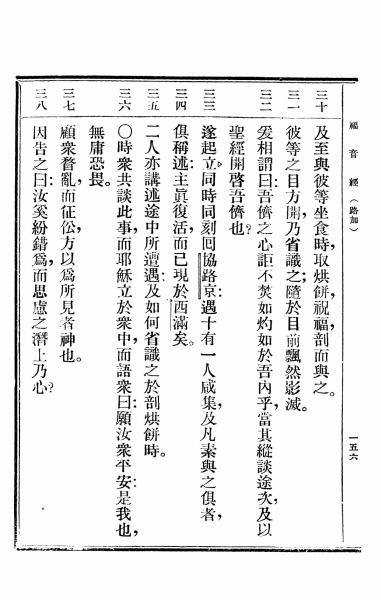 福音經 (路加)
一五六
三十 及至與彼等坐食時，取烘餅，祝福剖而與之。
三一 彼等之目方開，乃省識之；隨於目前飄然影滅。
三二 爰相謂曰：吾儕之心詎不焚如灼如於吾內乎，當其縱談途次，及以
聖經開啓吾儕也？
三三 遂起立，同時同刻回協路京：遇十有一人咸集，及凡素與之俱者，
三四 俱稱述：主眞復活，而已現於西滿矣。
三五 二人亦講述途中所遭遇：及如何省識之於剖烘餅時。
三六 〇時衆共談此事，而耶穌立於衆中，而語衆曰：願汝衆平安：是我也，
無庸恐畏。
三七 顧衆瞀亂，而怔忪，方以爲所見者神也。
三八 因告之曰：汝奚紛錯爲，而思慮之潛上乃心？